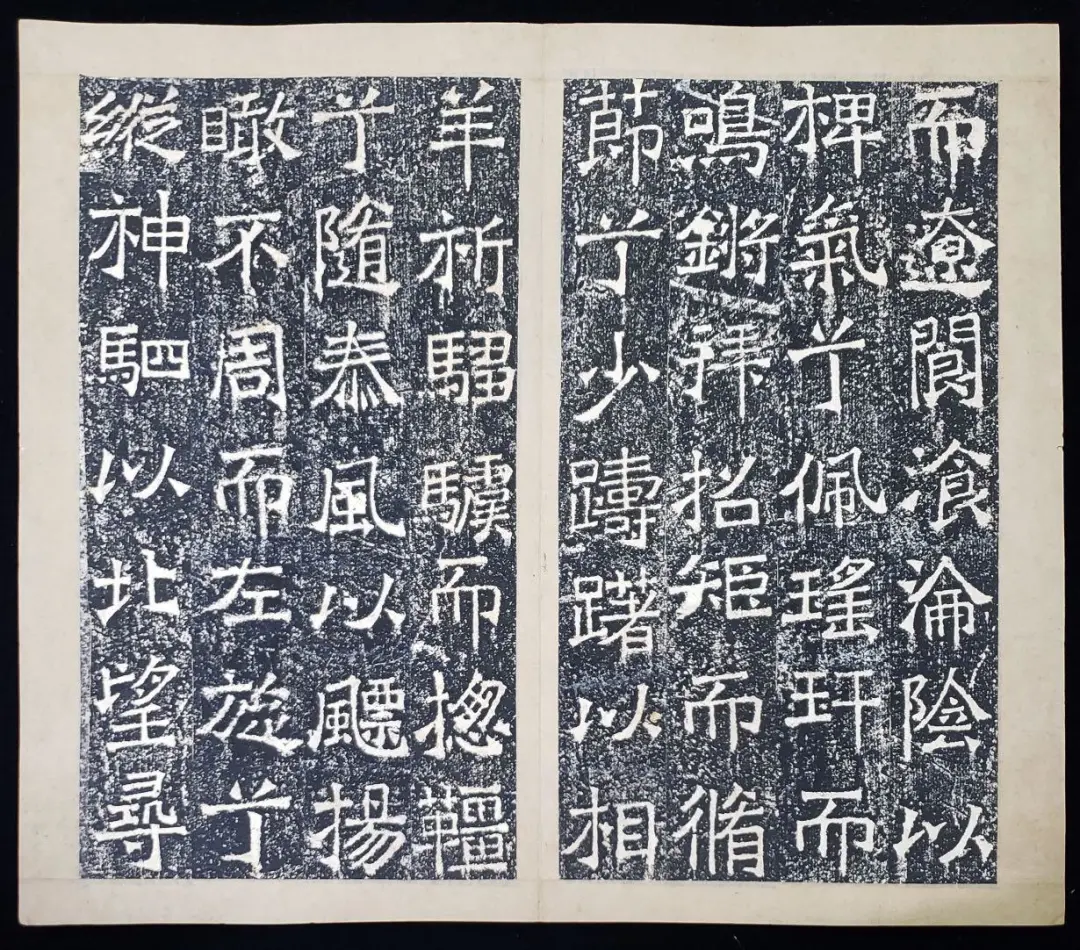 而遼閬飡淪陰以
椑氣兮佩瑤玕而
鳴鏘拜招矩而脩
莭兮少躊躇以相
羊祈騮驥而摠韁
兮隨泰風以飄揚
瞰不周而左旋兮
縱神駟以北望尋